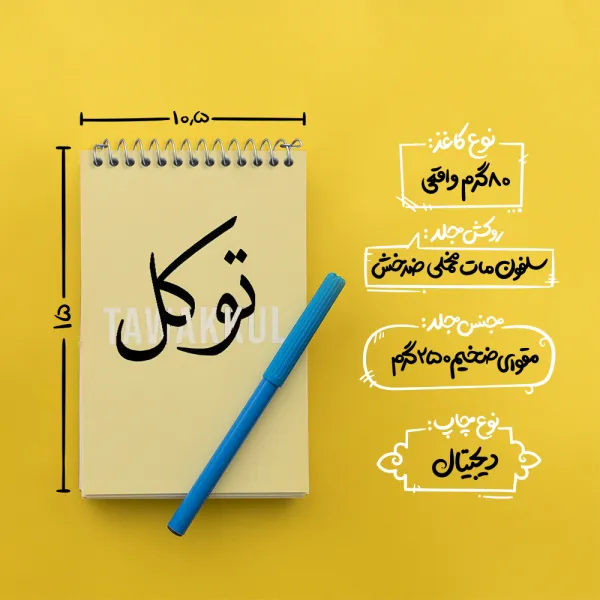 ۱۰٫۵
۱۵
توکل
TAWAKKUL
نوع کاغذ:
۸۰گرم واقعی
روکش جلد:
سلفون مات مخملی ضدخش
جنس جلد:
مقوای ضخیم ۲۵۰گرم
نوع چاپ:
دیجیتال